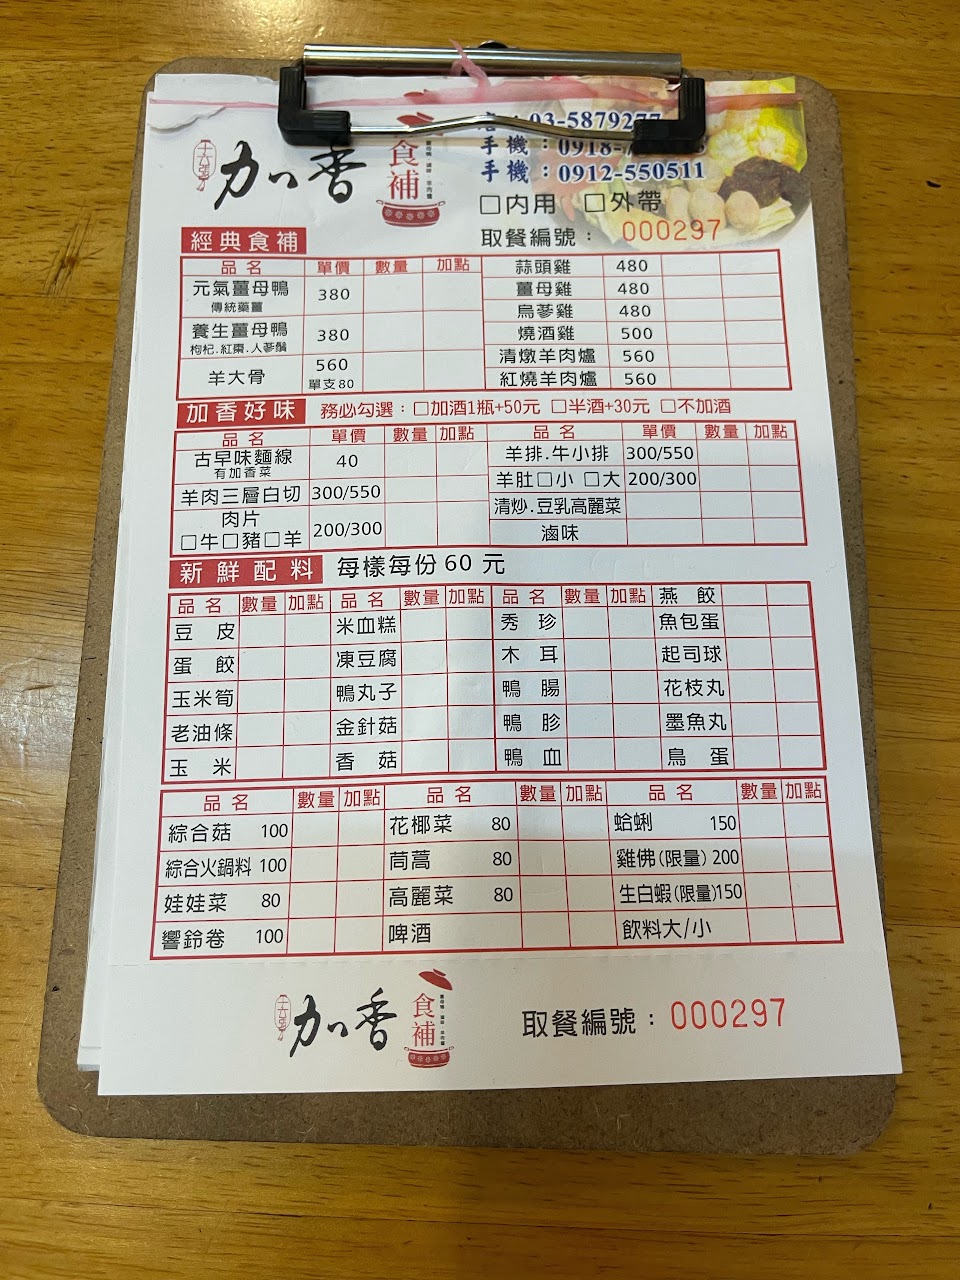 03-5879277
手機：0918-
手機：0912-550511
十六張 加香 食補
□內用 □外帶
取餐編號： 000297
經典食補
品名 單價 數量 加點
元氣薑母鴨 380
傳統藥薑
養生薑母鴨 380
枸杞.紅棗.人蔘鬚
羊大骨 560
單支80
蒜頭雞 480
薑母雞 480
烏蔘雞 480
燒酒雞 500
清燉羊肉爐 560
紅燒羊肉爐 560
加香好味 務必勾選：□加酒1瓶+50元 □半酒+30元 □不加酒
品名 單價 數量 加點 品名 單價 數量 加點
古早味麵線 40
有加香菜
羊肉三層白切 300/550
肉片
□牛□豬□羊 200/300
羊排.牛小排 300/550
羊肚□小 □大 200/300
清炒.豆乳高麗菜
滷味
新鮮配料 每樣每份60元
品名 數量 加點 品名 數量 加點 品名 數量 加點 燕餃
豆皮 米血糕 秀珍 魚包蛋
蛋餃 凍豆腐 木耳 起司球
玉米筍 鴨丸子 鴨腸 花枝丸
老油條 金針菇 鴨胗 墨魚丸
玉米 香菇 鴨血 鳥蛋
品名 數量 加點 品名 數量 加點 品名 數量 加點
綜合菇 100 花椰菜 80 蛤蜊 150
綜合火鍋料 100 茼蒿 80 雞佛(限量) 200
娃娃菜 80 高麗菜 80 生白蝦(限量)150
響鈴卷 100 啤酒 飲料大/小
十六張 加香 食補
取餐編號： 000297